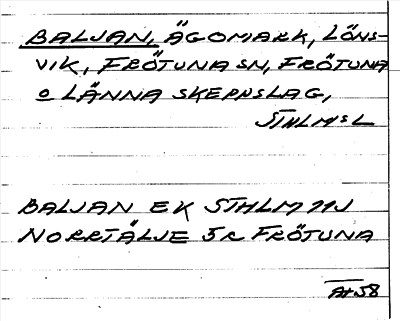 BALJAN, ÄGOMARK, LÖNS-
VIK, FRÖTUNA SN, FRÖTUNA
O LÄNNA SKEPPSLAG,
STHLMS L
BALJAN EK STHLM 11J
NORRTÄLJE 5R FRÖTUNA